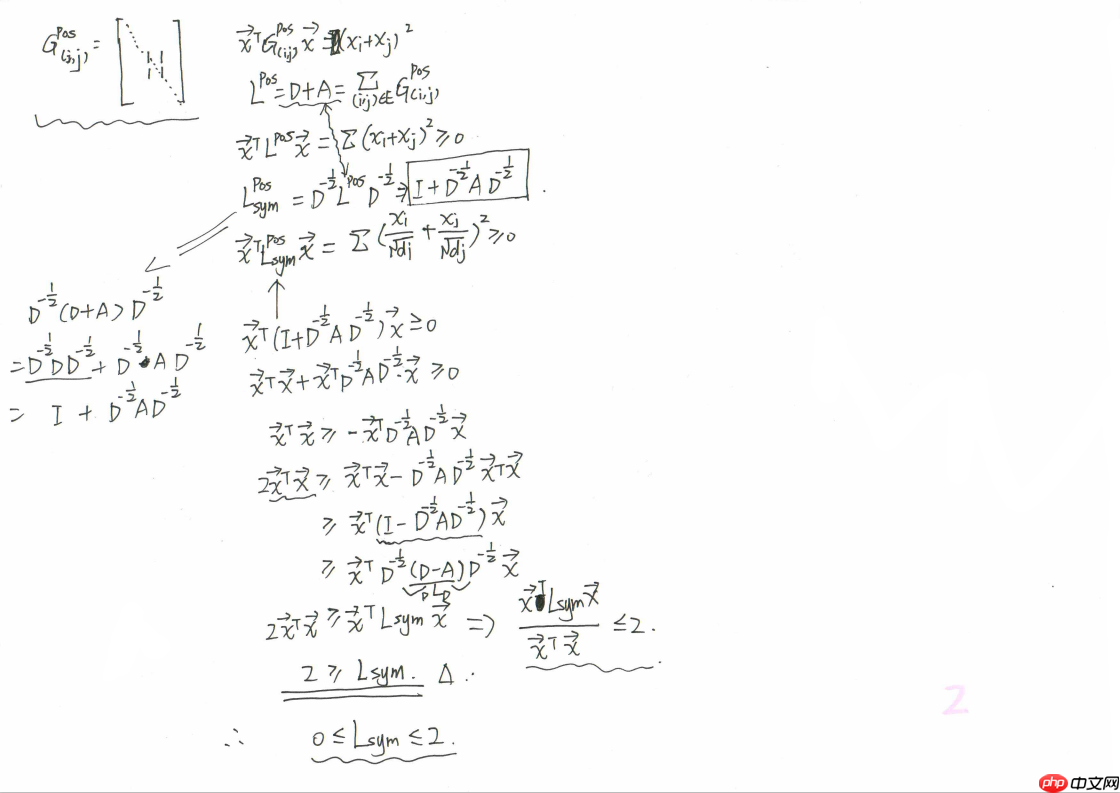 G^{Pos}_{(i,j)} = [ 1 1 1 1 ]
\vec{x}^T G^{Pos}_{(i,j)} \vec{x} = (x_i+x_j)^2
L^{Pos} = D+A = \sum_{(i,j)∈E} G^{Pos}_{(i,j)}
\vec{x}^T L^{Pos} \vec{x} = Σ(x_i+x_j)^2 ≥ 0
L^{Pos}_{sym} = D^{-1/2} L^{Pos} D^{-1/2} ⇒ I + D^{-1/2} A D^{-1/2} .
\vec{x}^T L^{Pos}_{sym} \vec{x} = Σ (x_i/√d_i + x_j/√d_j)^2 ≥ 0
D^{-1/2} (D+A) D^{-1/2}
= D^{-1/2} D D^{-1/2} + D^{-1/2} A D^{-1/2}
= I + D^{-1/2} A D^{-1/2}
\vec{x}^T (I + D^{-1/2} A D^{-1/2}) \vec{x} ≥ 0
\vec{x}^T \vec{x} + \vec{x}^T D^{-1/2} A D^{-1/2} · \vec{x} ≥ 0
\vec{x}^T \vec{x} ≥ - \vec{x}^T D^{-1/2} A D^{-1/2} \vec{x}
2\vec{x}^T \vec{x} ≥ \vec{x}^T \vec{x} - D^{-1/2} A D^{-1/2} \vec{x}^T \vec{x}
≥ \vec{x}^T (I - D^{-1/2} A D^{-1/2}) \vec{x}
≥ \vec{x}^T D^{-1/2} (D-A) D^{-1/2} \vec{x}
D L D
2\vec{x}^T \vec{x} ≥ \vec{x}^T L_{sym} \vec{x} ⇒ \vec{x}^T L_{sym} \vec{x} / \vec{x}^T \vec{x} ≤ 2.
2 ≥ L_{sym}. Δ
∴ 0 ≤ L_{sym} ≤ 2.
2
php 中文网